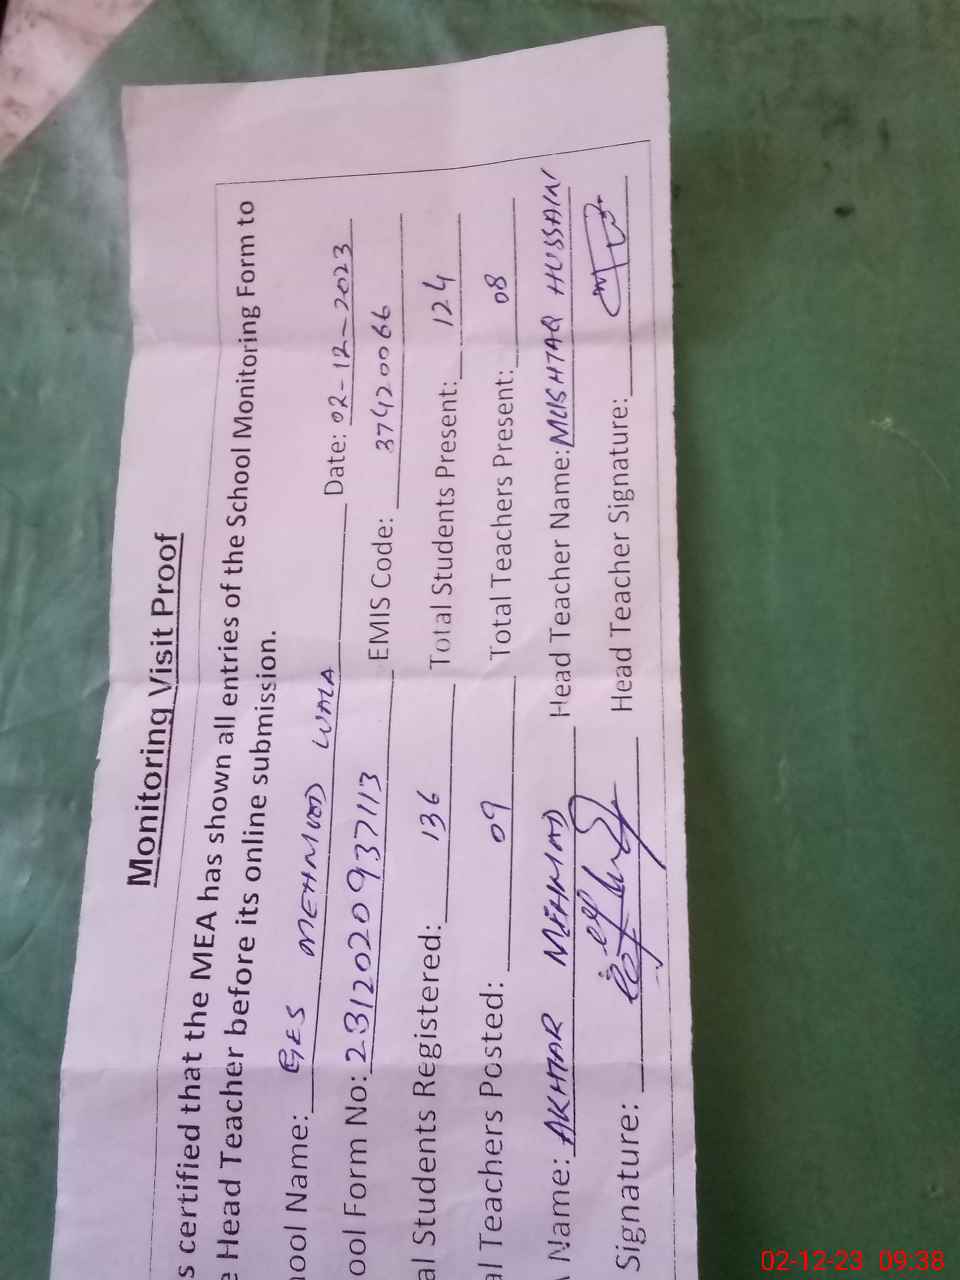 Monitoring Visit Proof
s certified that the MEA has shown all entries of the School Monitoring Form to
e Head Teacher before its online submission.
hool Name: GES MEHMOOD WALA Date: 02-12-2023
ool Form No: 2312020937113 EMIS Code: 37420066
al Students Registered: 136 Total Students Present: 124
al Teachers Posted: 09 Total Teachers Present: 08
A Name: AKHTAR MEHMAD Head Teacher Name: MUSHTAQ HUSSAIN
Signature: Head Teacher Signature:
02-12-23 09:38